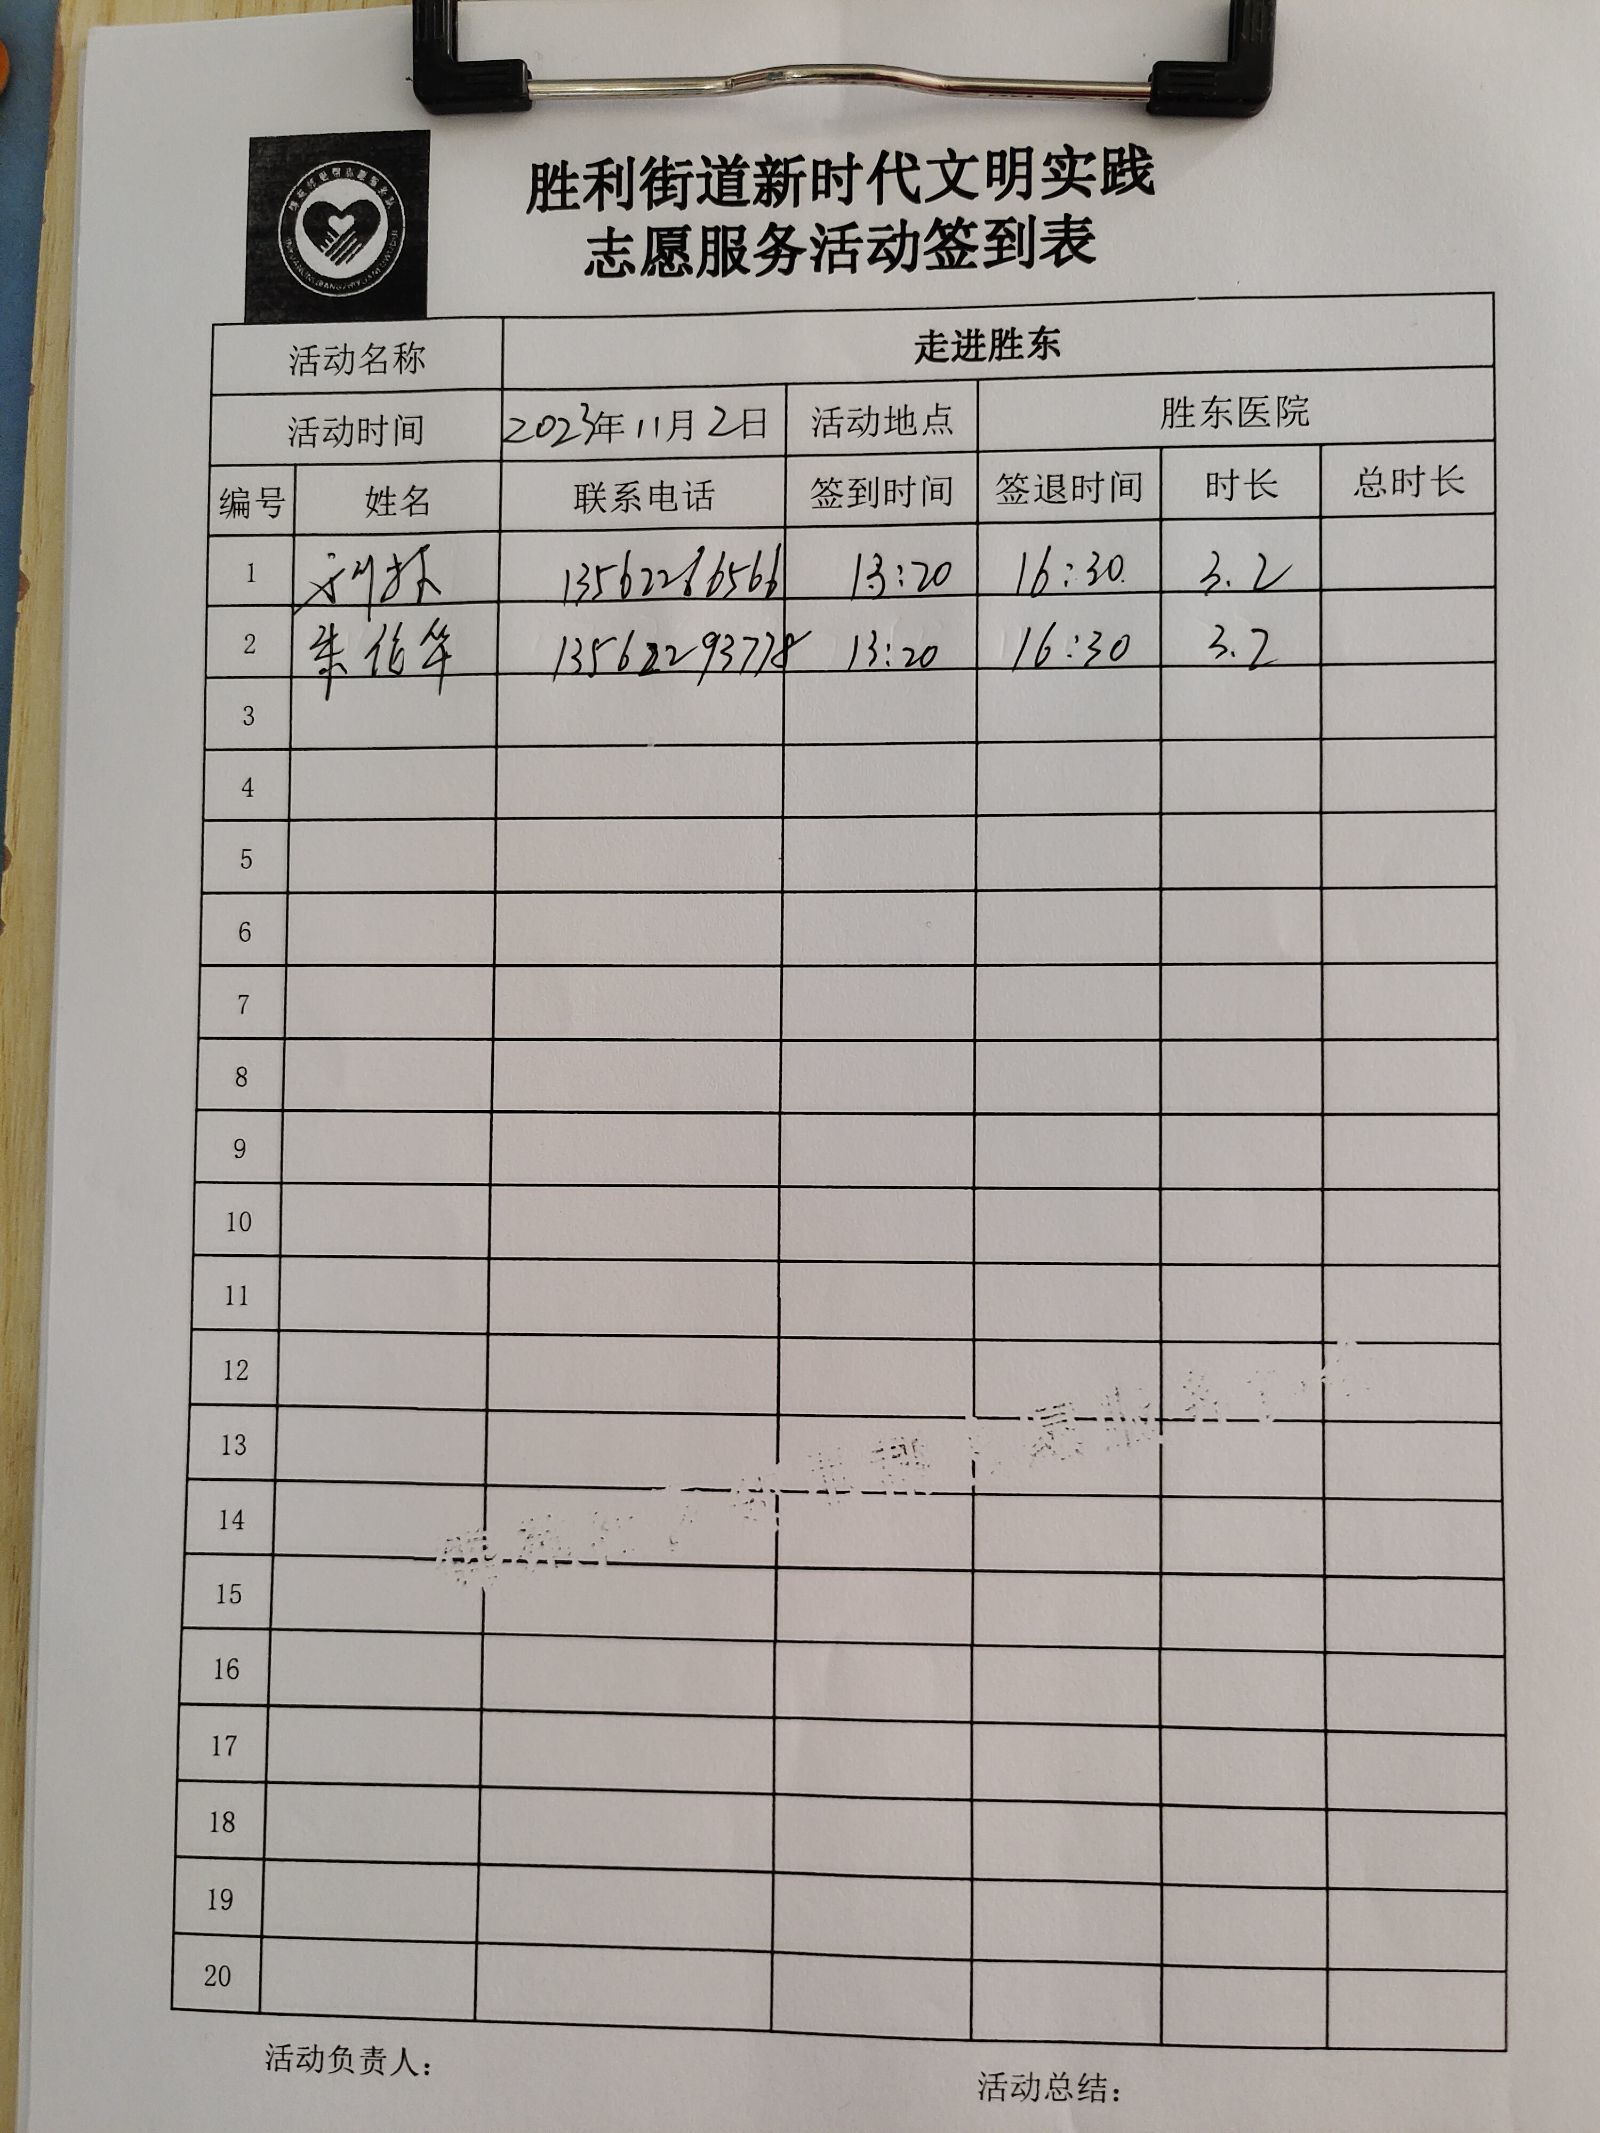 胜利街道新时代文明实践
志愿服务活动签到表
活动名称 走进胜东
活动时间 2023年11月2日 活动地点 胜东医院
编号 姓名 联系电话 签到时间 签退时间 时长 总时长
1 13562286566 13:20 16:30 3.2
2 朱伯华 13562293778 13:20 16:30 3.2
3
4
5
6
7
8
9
10
11
12
13
14
15
16
17
18
19
20
活动负责人： 活动总结：